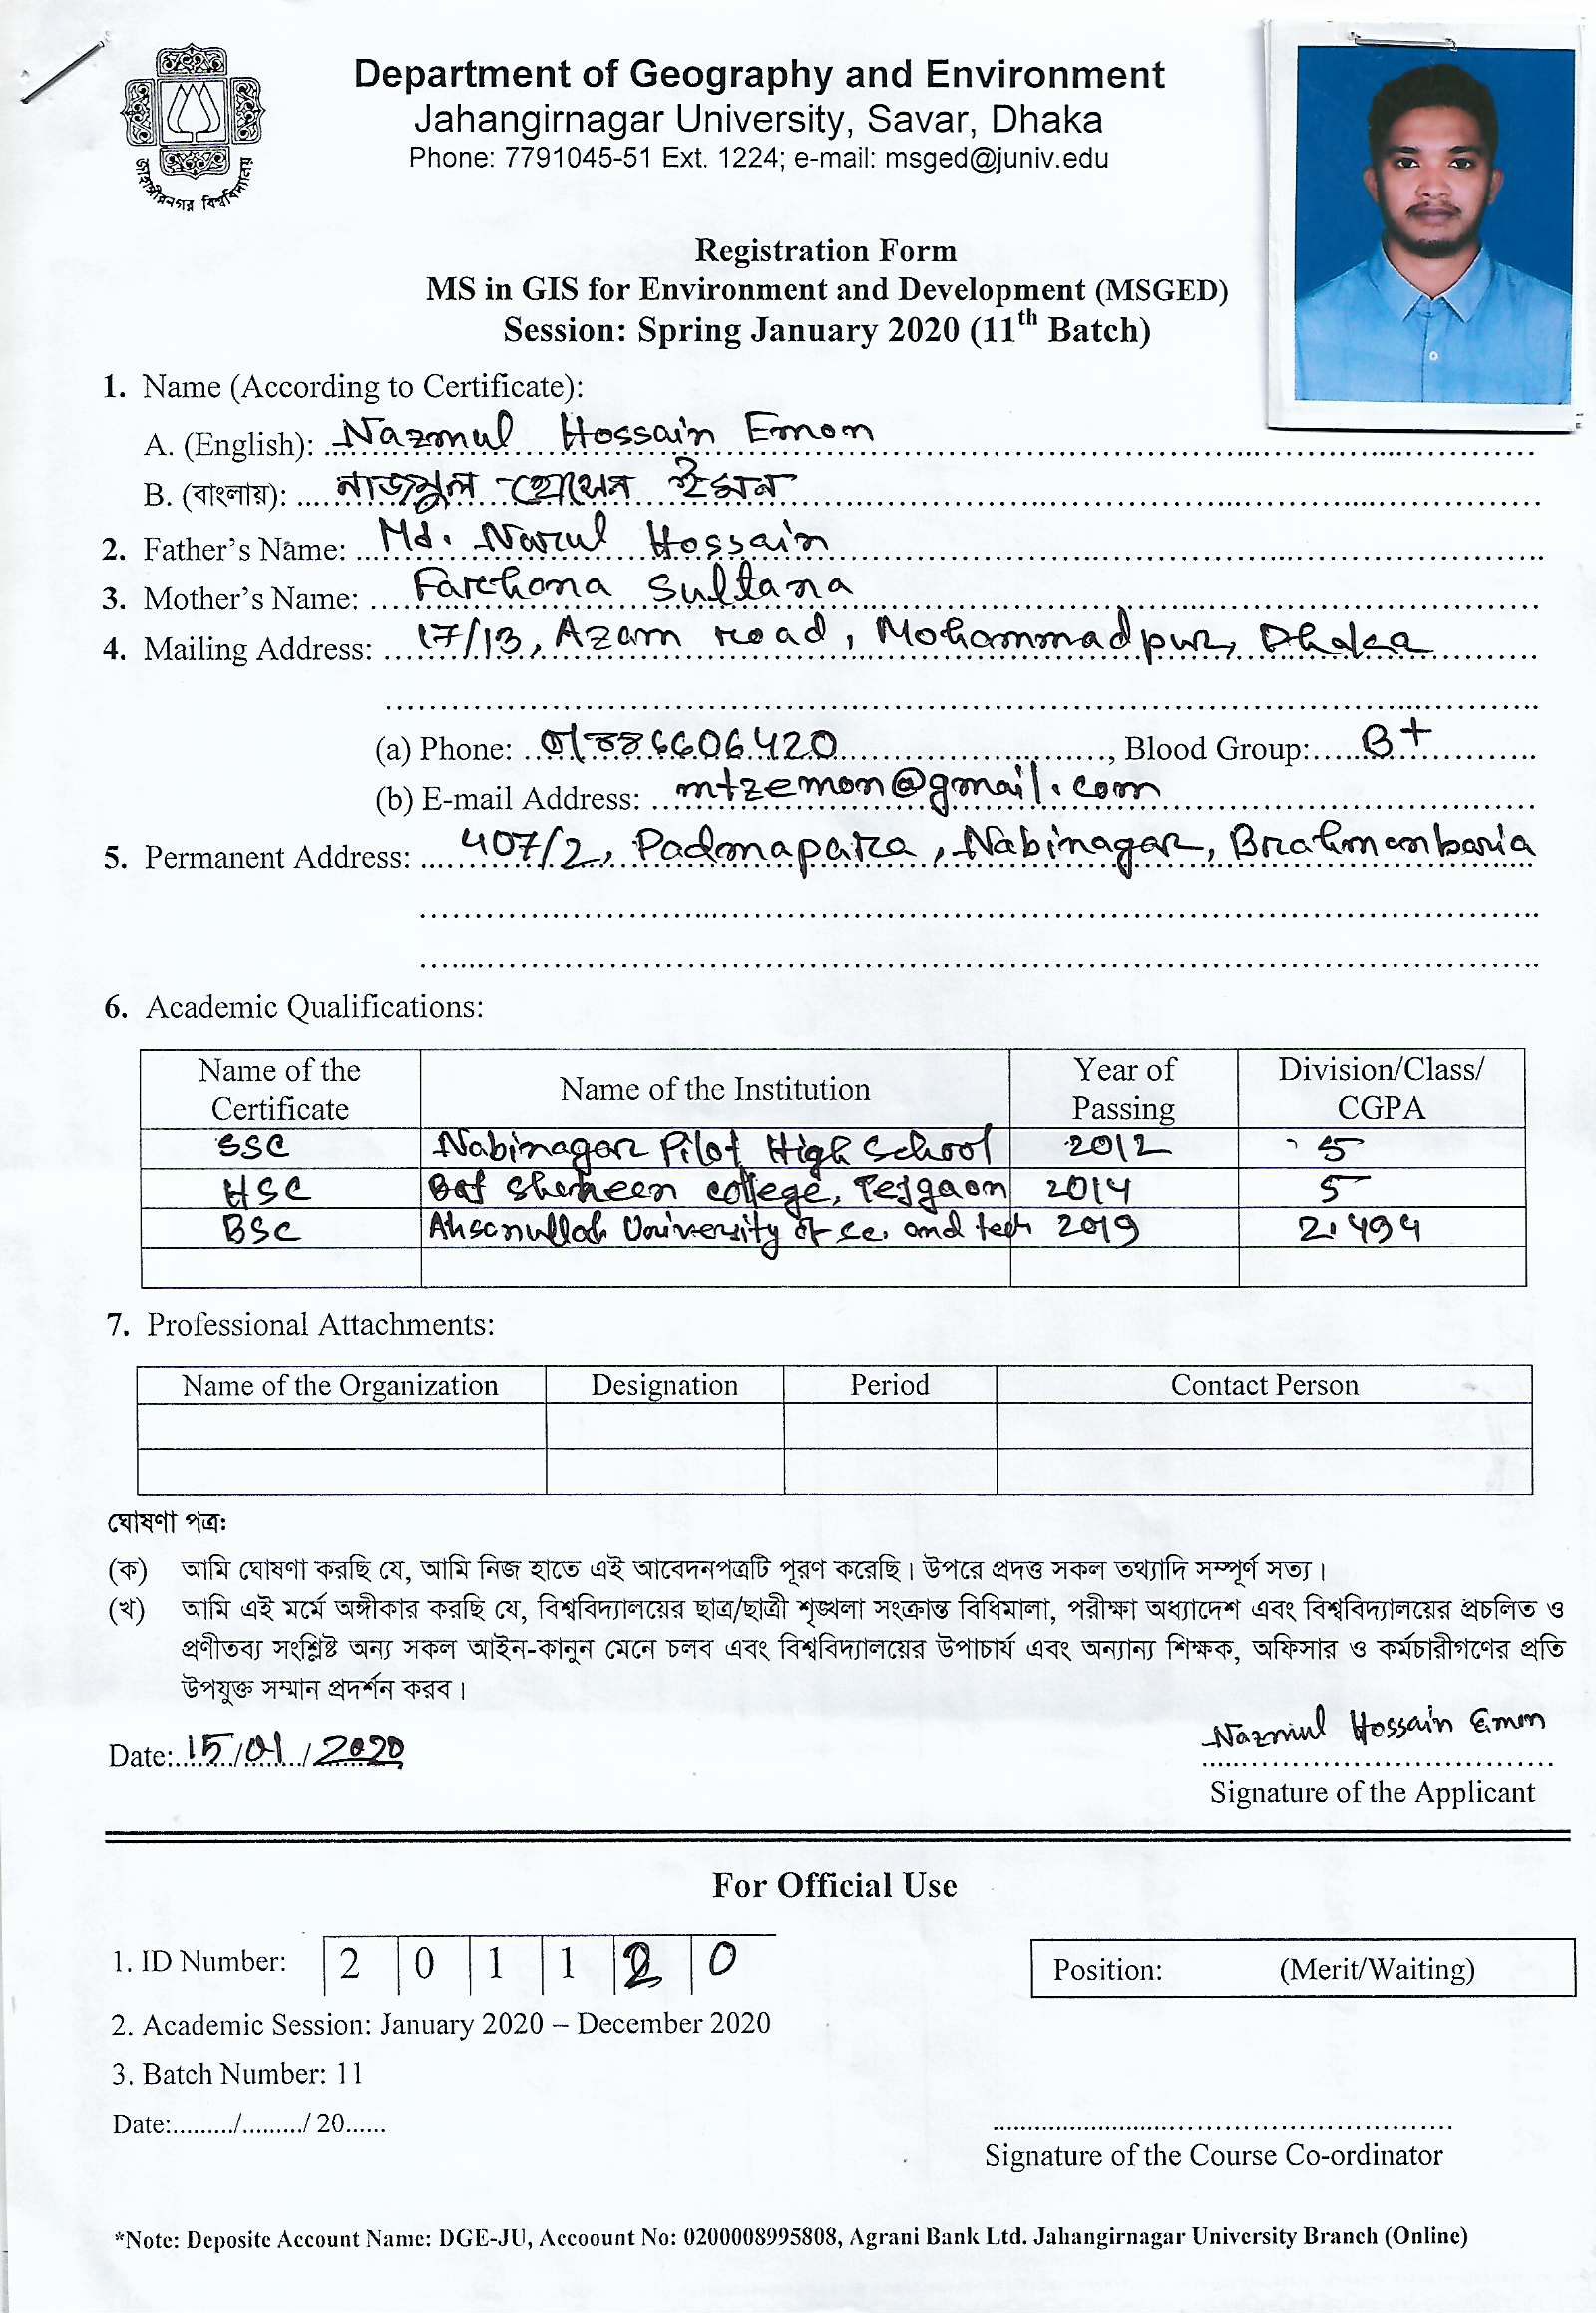 জাহাঙ্গীরনগর বিশ্ববিদ্যালয়
Department of Geography and Environment
Jahangirnagar University, Savar, Dhaka
Phone: 7791045-51 Ext. 1224; e-mail: msged@juniv.edu
Registration Form
MS in GIS for Environment and Development (MSGED)
Session: Spring January 2020 (11th Batch)
1. Name (According to Certificate):
A. (English): Nazmul Hossain Emon
B. (বাংলায়): নাজমুল হোসেন ইমন
2. Father's Name: Md. Narul Hossain
3. Mother's Name: Farehana Sultana
4. Mailing Address: 17/13, Azam road, Mohammadpur, Dhaka
(a) Phone: 01886606420, Blood Group: B+
(b) E-mail Address: mtzemon@gmail.com
5. Permanent Address: 407/2, Padmapara, Nabinagar, Brahmanbaria
6. Academic Qualifications:
Name of the Certificate Name of the Institution Year of Passing Division/Class/ CGPA
SSC Nabinagar Pilot High School 2012 5
HSC Baf Shaheen college, Tejgaon 2014 5
BSC Ahsanullah University of Sc. and tech 2019 2.494
7. Professional Attachments:
Name of the Organization Designation Period Contact Person
ঘোষণা পত্র:
(ক) আমি ঘোষণা করছি যে, আমি নিজ হাতে এই আবেদনপত্রটি পূরণ করেছি। উপরে প্রদত্ত সকল তথ্যাদি সম্পূর্ণ সত্য।
(খ) আমি এই মর্মে অঙ্গীকার করছি যে, বিশ্ববিদ্যালয়ের ছাত্র/ছাত্রী শৃঙ্খলা সংক্রান্ত বিধিমালা, পরীক্ষা অধ্যাদেশ এবং বিশ্ববিদ্যালয়ের প্রচলিত ও
প্রণীতব্য সংশ্লিষ্ট অন্য সকল আইন-কানুন মেনে চলব এবং বিশ্ববিদ্যালয়ের উপাচার্য এবং অন্যান্য শিক্ষক, অফিসার ও কর্মচারীগণের প্রতি
উপযুক্ত সম্মান প্রদর্শন করব।
Nazmul Hossain Emon
Date: 15/01/2020
Signature of the Applicant
For Official Use
1. ID Number: 2 0 1 1 2 0
Position: (Merit/Waiting)
2. Academic Session: January 2020 – December 2020
3. Batch Number: 11
Date:........./........./ 20......
Signature of the Course Co-ordinator
*Note: Deposite Account Name: DGE-JU, Accoount No: 0200008995808, Agrani Bank Ltd. Jahangirnagar University Branch (Online)